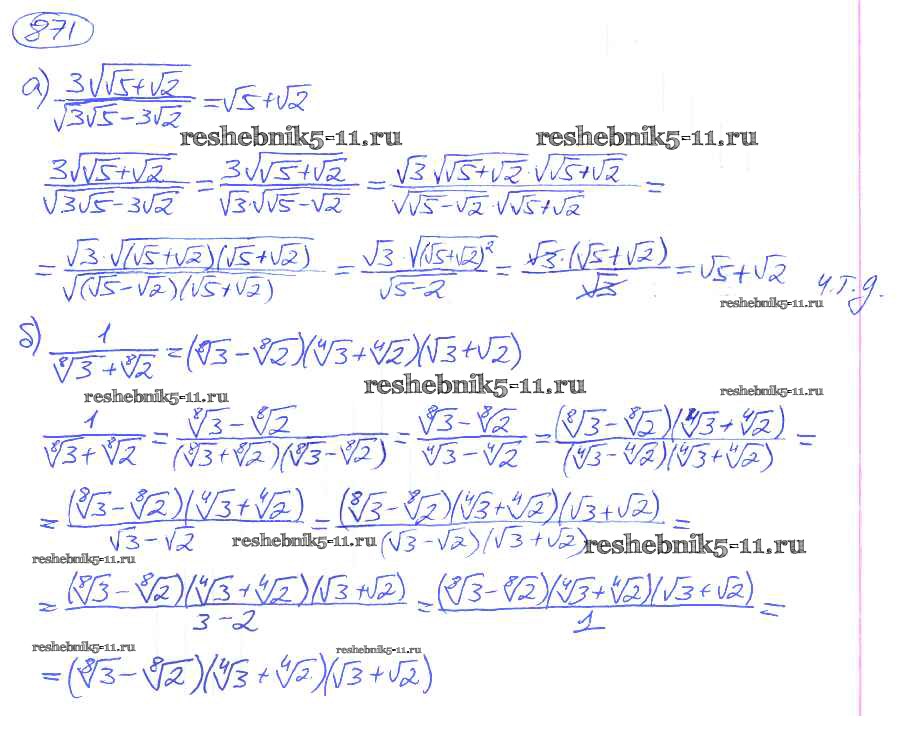 871
а) 3√(√5+√2) / √(3√5−3√2) = √5+√2
reshebnik5-11.ru reshebnik5-11.ru
3√(√5+√2) / √(3√5−3√2) = 3√(√5+√2) / (√3·√(√5−√2)) = √3·√(√5+√2)·√(√5+√2) / (√(√5−√2)·√(√5+√2)) =
= √3·√((√5+√2)(√5+√2)) / √((√5−√2)(√5+√2)) = √3·√((√5+√2)²) / √(5−2) = √3·(√5+√2) / √3 = √5+√2 ч.т.д.
reshebnik5-11.ru
б) 1 / (⁸√3+⁸√2) = (⁸√3−⁸√2)(⁴√3+⁴√2)(√3+√2)
reshebnik5-11.ru reshebnik5-11.ru reshebnik5-11.ru
1 / (⁸√3+⁸√2) = (⁸√3−⁸√2) / ((⁸√3+⁸√2)(⁸√3−⁸√2)) = (⁸√3−⁸√2) / (⁴√3−⁴√2) = (⁸√3−⁸√2)(⁴√3+⁴√2) / ((⁴√3−⁴√2)(⁴√3+⁴√2)) =
= (⁸√3−⁸√2)(⁴√3+⁴√2) / (√3−√2) = (⁸√3−⁸√2)(⁴√3+⁴√2)(√3+√2) / ((√3−√2)(√3+√2)) =
reshebnik5-11.ru reshebnik5-11.ru reshebnik5-11.ru
= (⁸√3−⁸√2)(⁴√3+⁴√2)(√3+√2) / (3−2) = (⁸√3−⁸√2)(⁴√3+⁴√2)(√3+√2) / 1 =
reshebnik5-11.ru reshebnik5-11.ru
= (⁸√3−⁸√2)(⁴√3+⁴√2)(√3+√2)